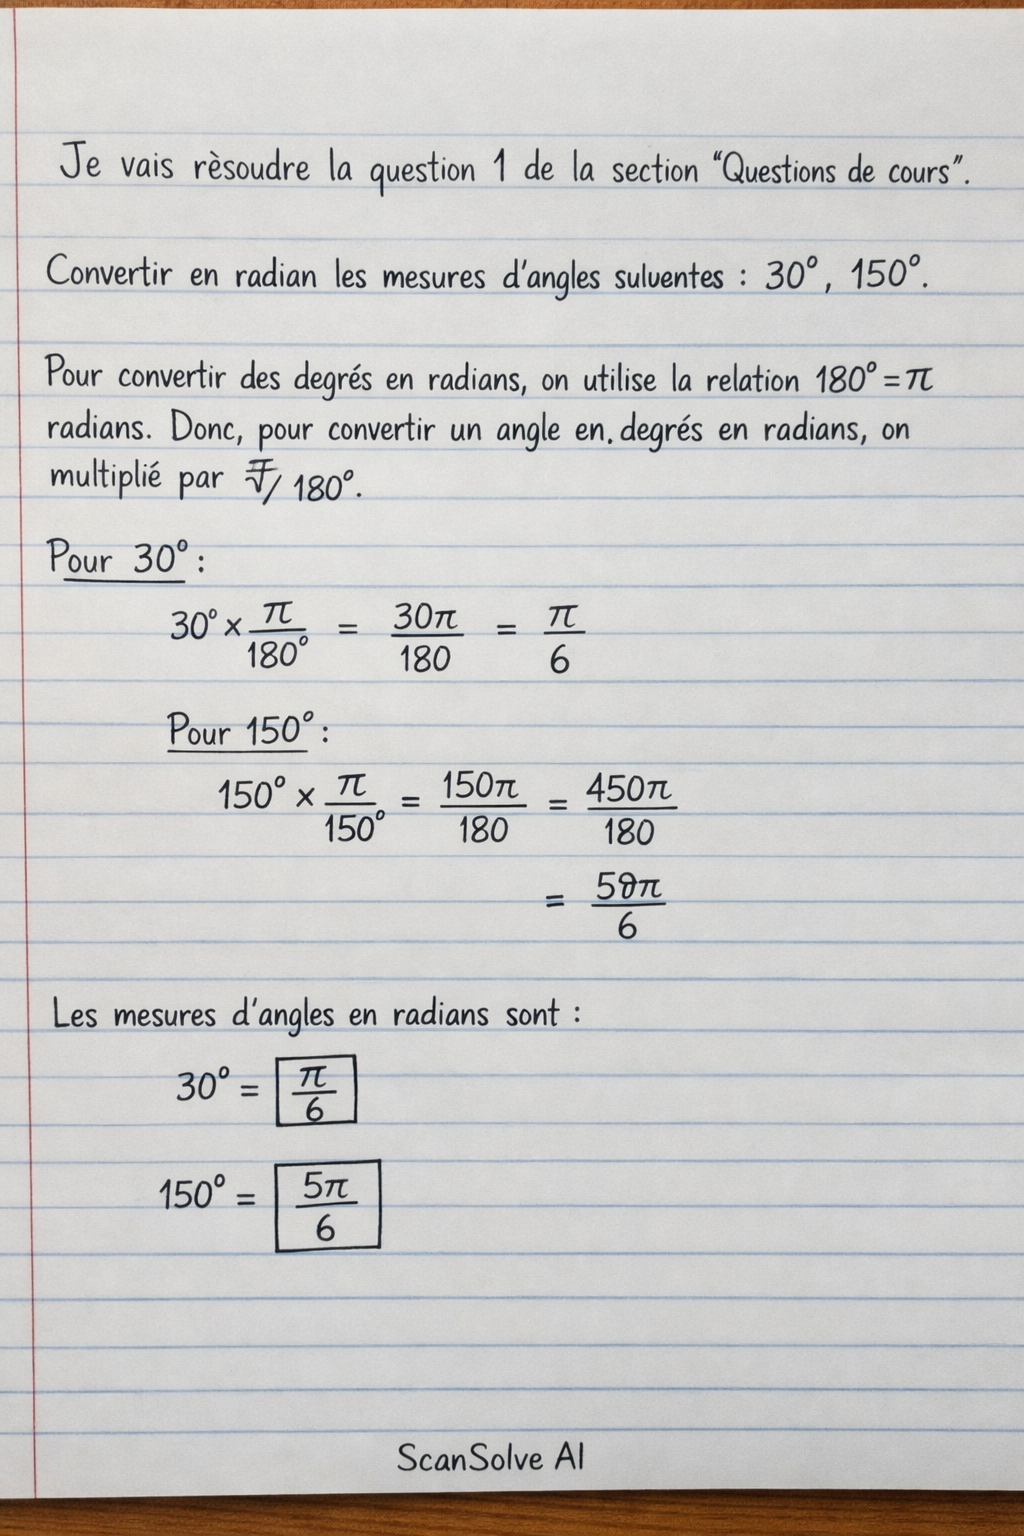 Je vais rèsoudre la question 1 de la section “Questions de cours”.
Convertir en radian les mesures d'angles suluentes : 30°, 150°.
Pour convertir des degrés en radians, on utilise la relation 180° = π
radians. Donc, pour convertir un angle en. degrés en radians, on
multiplié par / 180°.
Pour 30° :
30° × π/180° = 30π/180 = π/6
Pour 150° :
150° × π/150° = 150π/180 = 450π/180
= 50π/6
Les mesures d'angles en radians sont :
30° = π/6
150° = 5π/6
ScanSolve AI